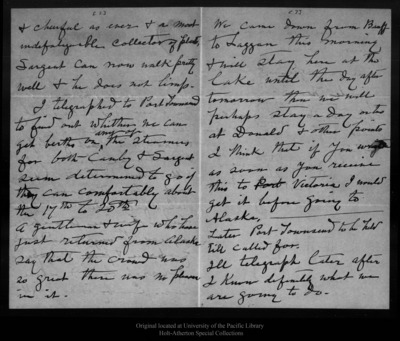 & cheerful as ever & a most
indefatigable collector of plants,
Sargent can now walk pretty
well & he does not limp.
I telegraphed to Port Townsend
to find out whether we can
get berths on any of the steamers
for both Canby & Sargent
seem determined to go if
they can comfortably about
the 17th to 20th
A gentleman & wife who have
just returned from Alaska
say that the crowd was
so great there was no pleasure
in it.
We came down from Banff
to Laggan this morning
& will stay here at the
Lake until the day after
tomorrow then we will
perhaps stay a day or two
at Donald & other points
I think that if you write
as soon as you receive
this to Port Victoria I would
get it before going to
Alaska,
Later Port Townsend to be held
till called for.
Ill telegraph later after
I know definitely what we
are going to do.
Original located at University of the Pacific Library
Holt-Atherton Special Collections